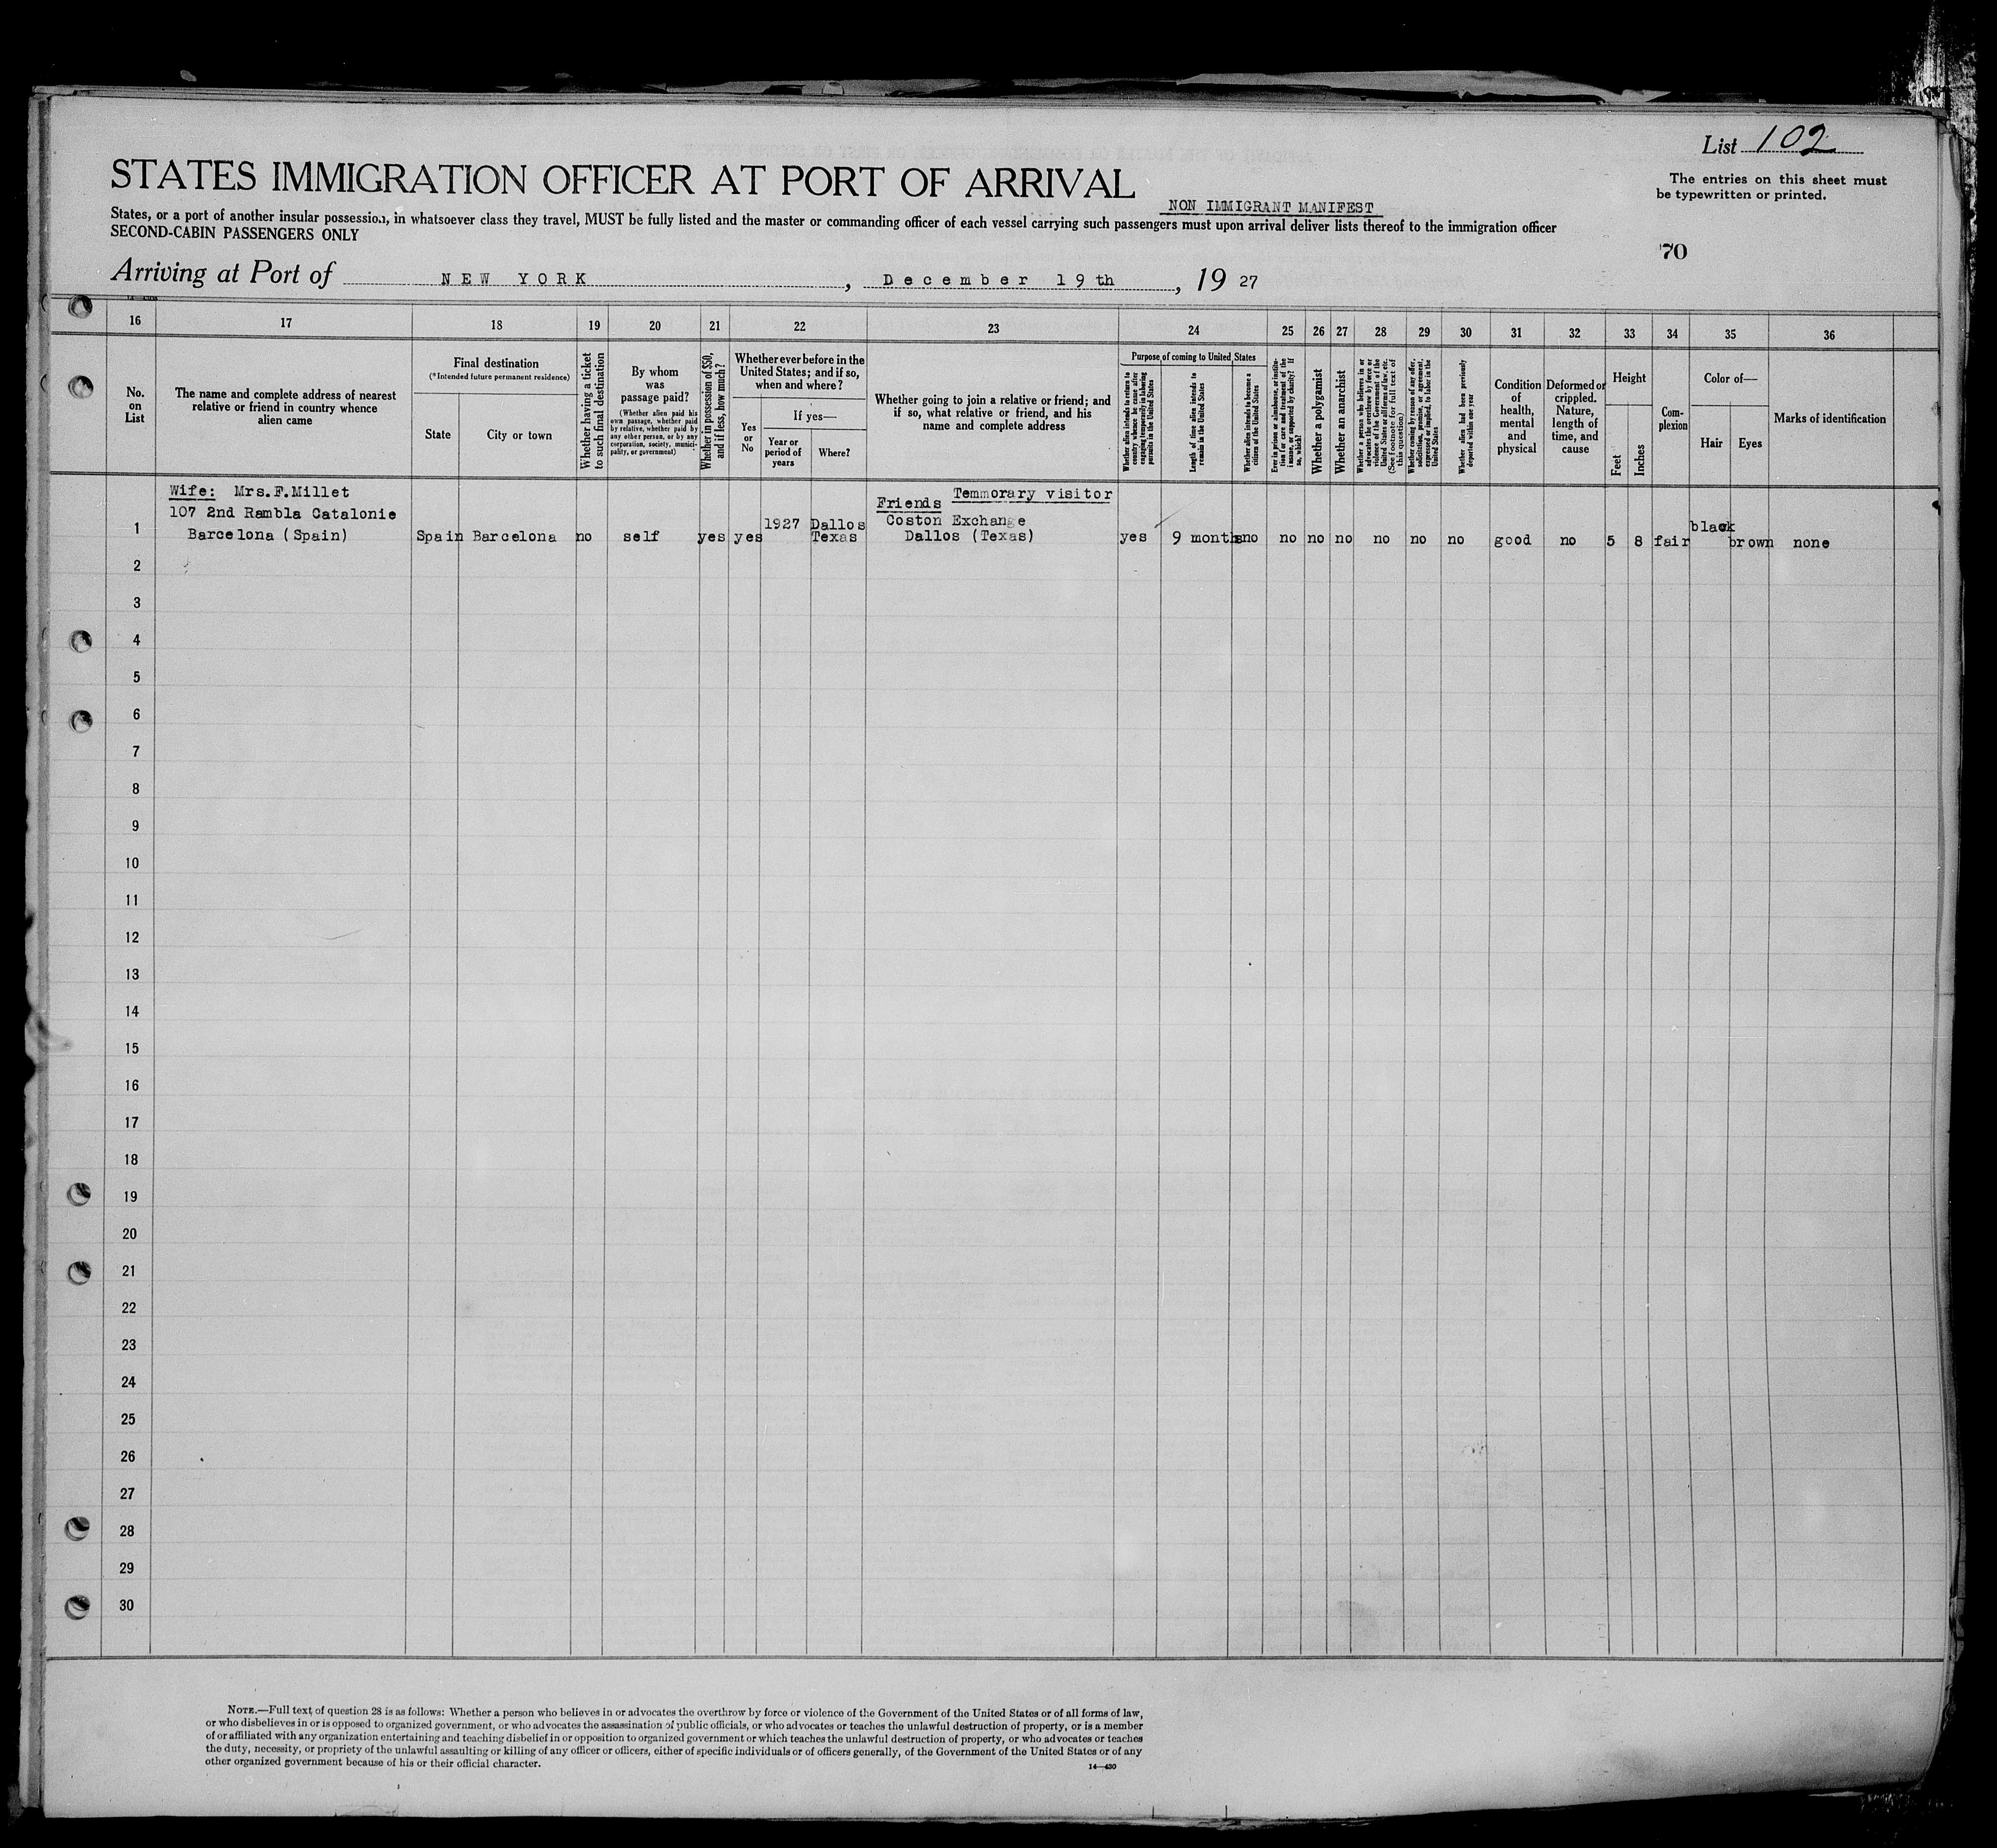 List 102
The entries on this sheet must
be typewritten or printed.
STATES IMMIGRATION OFFICER AT PORT OF ARRIVAL
NON IMMIGRANT MANIFEST
States, or a port of another insular possession, in whatsoever class they travel, MUST be fully listed and the master or commanding officer of each vessel carrying such passengers must upon arrival deliver lists thereof to the immigration officer
SECOND-CABIN PASSENGERS ONLY
70
Arriving at Port of NEW YORK, December 19th, 1927
16 17 18 19 20 21 22 23 24 25 26 27 28 29 30 31 32 33 34 35 36
No.
on
List
The name and complete address of nearest
relative or friend in country whence
alien came
Final destination
(*Intended future permanent residence)
State
City or town
Whether having a ticket
to such final destination
By whom
was
passage paid?
(Whether alien paid his
own passage, whether paid
by relative, whether paid by
any other person, or by any
corporation, society, munici-
pality, or government)
Whether in possession of $50,
and if less, how much?
Whether ever before in the
United States; and if so,
when and where?
Yes
or
No
If yes—
Year or
period of
years
Where?
Whether going to join a relative or friend; and
if so, what relative or friend, and his
name and complete address
Purpose of coming to United States
Whether alien intends to return to
country whence he came after
engaging temporarily in laboring
pursuits in the United States
Length of time alien intends to
remain in the United States
Whether alien intends to become a
citizen of the United States
Ever in prison or almshouse, or institu-
tion for care and treatment of the
insane, or supported by charity? If
so, which?
Whether a polygamist
Whether an anarchist
Whether a person who believes in or
advocates the overthrow by force or
violence of the Government of the
United States or all forms of law, etc.
(See footnote for full text of
this question)
Whether coming by reason of any offer,
solicitation, promise, or agreement,
expressed or implied, to labor in the
United States
Whether alien had been previously
deported within one year
Condition
of
health,
mental
and
physical
Deformed or
crippled.
Nature,
length of
time, and
cause
Height
Feet
Inches
Com-
plexion
Color of—
Hair
Eyes
Marks of identification
Wife: Mrs.F.Millet
107 2nd Rambla Catalonie
Barcelona (Spain)
Temmorary visitor
Friends
Coston Exchange
Dallos (Texas)
1 Spain Barcelona no self yes yes 1927 Dallos
Texas
yes 9 months no no no no no no no good no 5 8 fair black brown none
2
3
4
5
6
7
8
9
10
11
12
13
14
15
16
17
18
19
20
21
22
23
24
25
26
27
28
29
30
NOTE.—Full text of question 28 is as follows: Whether a person who believes in or advocates the overthrow by force or violence of the Government of the United States or of all forms of law,
or who disbelieves in or is opposed to organized government, or who advocates the assassination of public officials, or who advocates or teaches the unlawful destruction of property, or is a member
of or affiliated with any organization entertaining and teaching disbelief in or opposition to organized government or which teaches the unlawful destruction of property, or who advocates or teaches
the duty, necessity, or propriety of the unlawful assaulting or killing of any officer or officers, either of specific individuals or of officers generally, of the Government of the United States or of any
other organized government because of his or their official character.
14—430